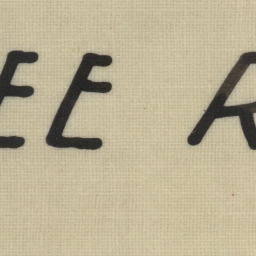 EE R